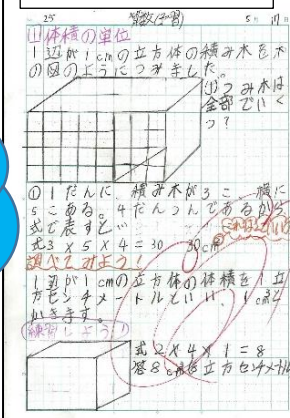 25 算数(予習) 5月
11体積の単位
1辺が1cmの立方体の積み木を木
の図のようにつみました。
①つみ木は
全部でいく
つ?
①1だんに、積み木が3こ、横に
5こある。4だんつんであるから
式で表すと
式3×5×4=30 30cm
調べてみよう!
1辺が1cmの立方体の体積を1立
方センチメートルといい、1cm³と
かきます。
練習しよう!
式2×4×1=8
答8cm³ 立方センチメートル